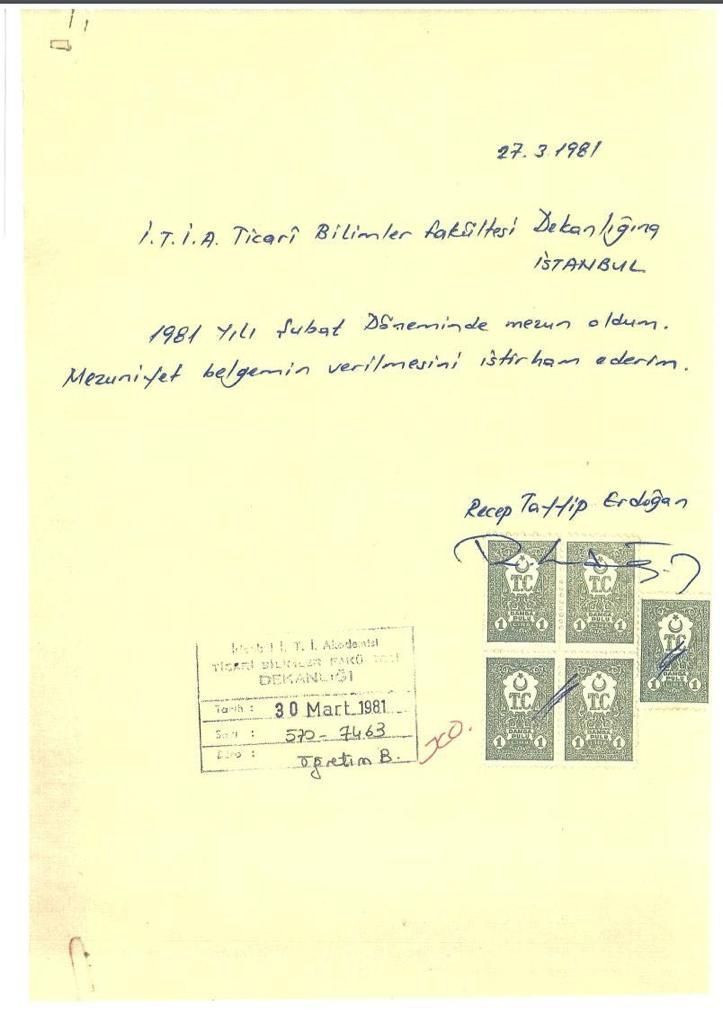 27.3.1981
İ.T.İ.A. Ticarî Bilimler fakültesi Dekanlığına
İSTANBUL
1981 Yılı Şubat Döneminde mezun oldum.
Mezuniyet belgemin verilmesini istirham ederim.
Recep Tayyip Erdoğan
T.C
DAMGA PULU
1 1
T.C
DAMGA PULU
1 1
T.C
DAMGA PULU
1 1
T.C
DAMGA PULU
1 1
T.C
DAMGA PULU
1 1
İ. T. İ. Akademisi
TİCARİ BİLİMLER
DEKANLIĞI
Tarih : 30 Mart 1981
Sayı : 570-7463
Büro : öğretim B.